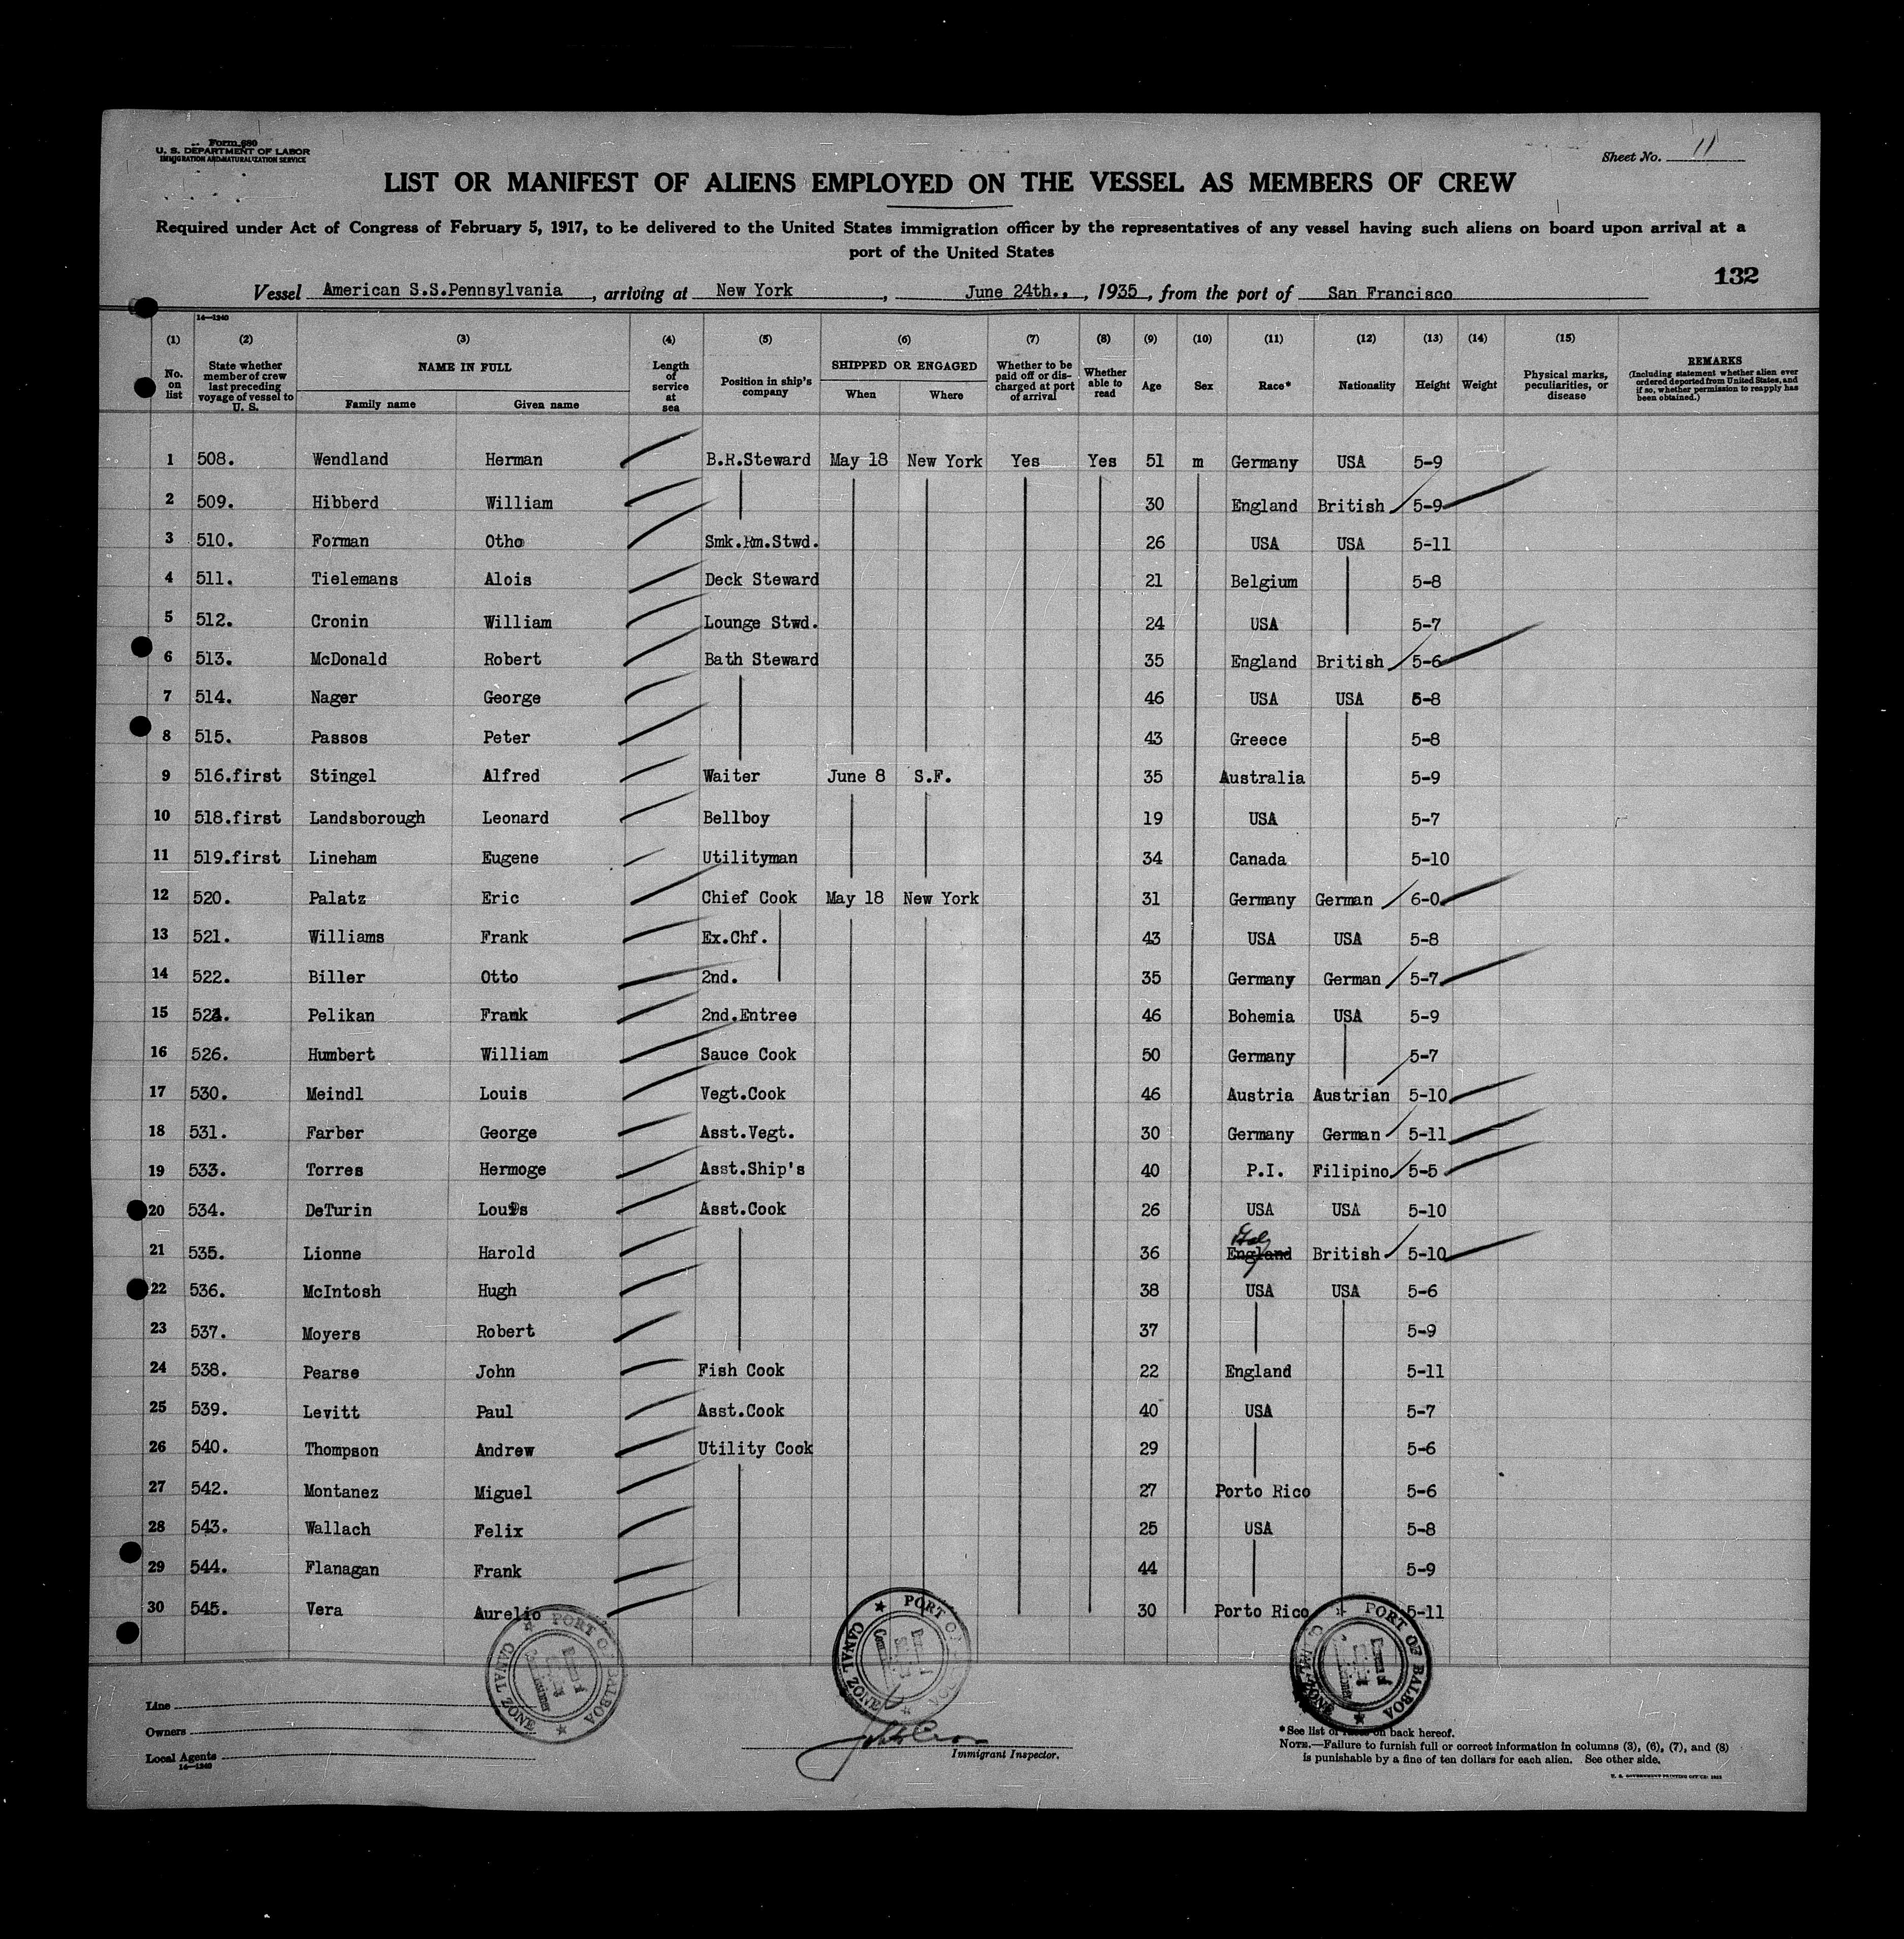 Form 680
U. S. DEPARTMENT OF LABOR
IMMIGRATION AND NATURALIZATION SERVICE
Sheet No. 11
LIST OR MANIFEST OF ALIENS EMPLOYED ON THE VESSEL AS MEMBERS OF CREW
Required under Act of Congress of February 5, 1917, to be delivered to the United States immigration officer by the representatives of any vessel having such aliens on board upon arrival at a
port of the United States
132
Vessel American S.S.Pennsylvania, arriving at New York, June 24th., 1935, from the port of San Francisco
14—1240
(1) (2) (3) (4) (5) (6) (7) (8) (9) (10) (11) (12) (13) (14) (15)
No. on list State whether member of crew last preceding voyage of vessel to U. S. NAME IN FULL Family name Given name Length of service at sea Position in ship's company SHIPPED OR ENGAGED When Where Whether to be paid off or discharged at port of arrival Whether able to read Age Sex Race* Nationality Height Weight Physical marks, peculiarities, or disease REMARKS (Including statement whether alien ever ordered deported from United States, and if so, whether permission to reapply has been obtained.)
1 508. Wendland Herman B.R.Steward May 18 New York Yes Yes 51 m Germany USA 5-9
2 509. Hibberd William 30 England British 5-9
3 510. Forman Otho Smk.Rm.Stwd. 26 USA USA 5-11
4 511. Tielemans Alois Deck Steward 21 Belgium 5-8
5 512. Cronin William Lounge Stwd. 24 USA 5-7
6 513. McDonald Robert Bath Steward 35 England British 5-6
7 514. Nager George 46 USA USA 5-8
8 515. Passos Peter 43 Greece 5-8
9 516.first Stingel Alfred Waiter June 8 S.F. 35 Australia 5-9
10 518.first Landsborough Leonard Bellboy 19 USA 5-7
11 519.first Lineham Eugene Utilityman 34 Canada 5-10
12 520. Palatz Eric Chief Cook May 18 New York 31 Germany German 6-0
13 521. Williams Frank Ex.Chf. 43 USA USA 5-8
14 522. Biller Otto 2nd. 35 Germany German 5-7
15 524. Pelikan Frank 2nd.Entree 46 Bohemia USA 5-9
16 526. Humbert William Sauce Cook 50 Germany 5-7
17 530. Meindl Louis Vegt.Cook 46 Austria Austrian 5-10
18 531. Farber George Asst.Vegt. 30 Germany German 5-11
19 533. Torres Hermoge Asst.Ship's 40 P.I. Filipino 5-5
20 534. DeTurin Louis Asst.Cook 26 USA USA 5-10
21 535. Lionne Harold 36 England Italy British 5-10
22 536. McIntosh Hugh 38 USA USA 5-6
23 537. Moyers Robert 37 5-9
24 538. Pearse John Fish Cook 22 England 5-11
25 539. Levitt Paul Asst.Cook 40 USA 5-7
26 540. Thompson Andrew Utility Cook 29 5-6
27 542. Montanez Miguel 27 Porto Rico 5-6
28 543. Wallach Felix 25 USA 5-8
29 544. Flanagan Frank 44 5-9
30 545. Vera Aurelio 30 Porto Rico 5-11
PORT OF BALBOA CANAL ZONE
PORT OF BALBOA CANAL ZONE
PORT OF BALBOA CANAL ZONE
Line
Owners
Local Agents
14—1240
Immigrant Inspector.
*See list of races on back hereof.
NOTE.—Failure to furnish full or correct information in columns (3), (6), (7), and (8)
is punishable by a fine of ten dollars for each alien. See other side.